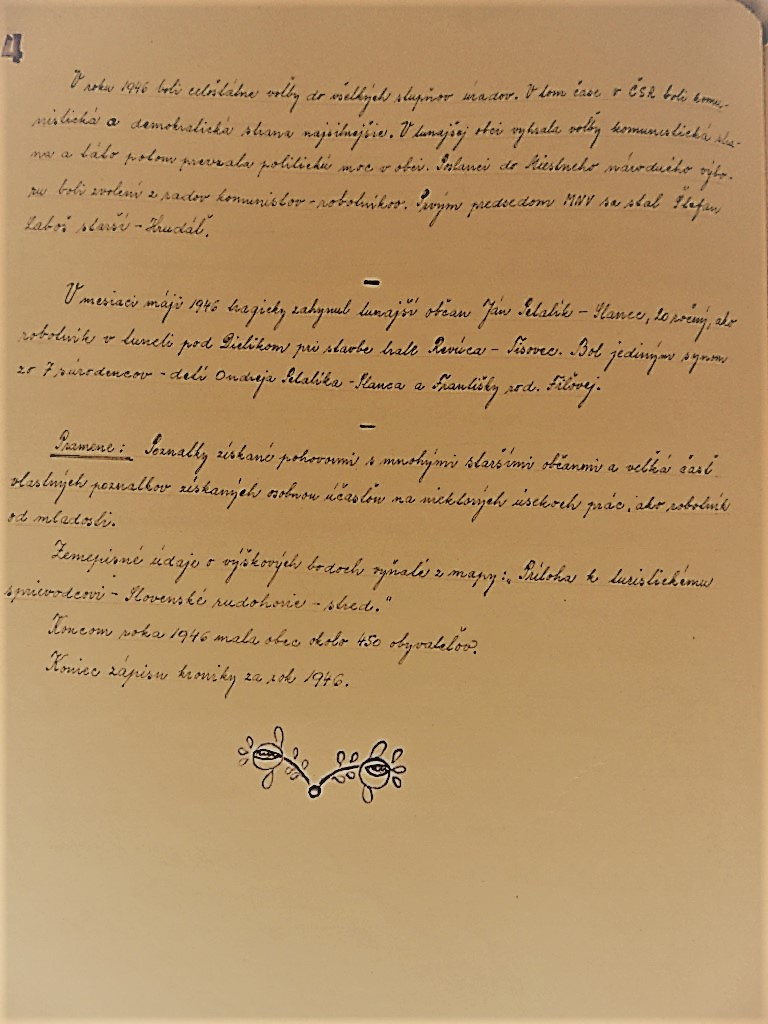 4
V roku 1946 boli celoštátne voľby do všetkých stupňov úradov. V tom čase v ČSR boli komu-
nistická a demokratická strana najsilnejšie. V tunajšej obci vyhrala voľby komunistická stra-
na a táto potom prevzala politickú moc v obci. Poslanci do Miestneho národného výbo-
ru boli zvolení z radov komunistov - robotníkov. Prvým predsedom MNV sa stal Štefan
Laboš starší - Hrudáš.
V mesiaci máji 1946 tragicky zahynul tunajší občan Ján Petalík - Slanec, 20 ročný, ako
robotník v tuneli pod Dielikom pri stavbe trate Revúca - Tisovec. Bol jediným synom
zo 7 súrodencov - detí Ondreja Petalíka - Slanca a Františky rod. Fiľovej.
Pramene: Poznatky získané pohovormi s mnohými staršími občanmi a veľká časť
vlastných poznatkov získaných osobnou účasťou na niektorých úsekoch prác, ako robotník
od mladosti.
Zemepisné údaje o výškových bodoch vyňaté z mapy: „Príloha k turistickému
sprievodcovi - Slovenské rudohorie - stred."
Koncom roka 1946 mala obec okolo 450 obyvateľov.
Koniec zápisu kroniky za rok 1946.